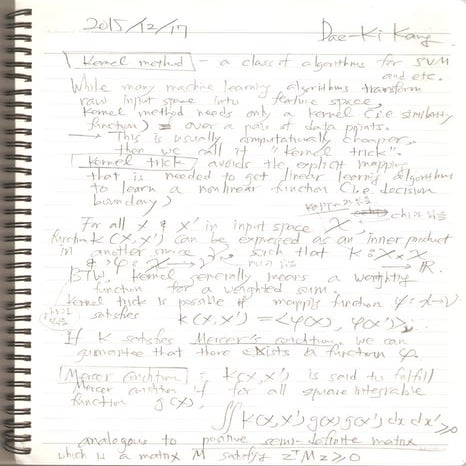 2015/12/17 Dae-Ki Kang
Kernel method - a class of algorithms for SVM
and etc.
While many machine learning algorithms transform
raw input space into feature space,
kernel method needs only a kernel (i.e. similarity
function) over a pair of data points.
→ This is usually computationally cheaper,
then we call it "kernel trick".
Kernel trick avoids the explicit mapping
that is needed to get linear learning algorithms
to learn a nonlinear function (i.e. decision
boundary)
For all x & x' in input space X,
function k(x, x') can be expressed as an inner product
in another space V, such that k: X × X
→ ℝ.
& φ: X → V
BTW, Kernel generally means a weighting
function for a weighted sum.
kernel trick is possible if mapping function φ: X→V
satisfies k(x, x') = <φ(x), φ(x')>
If K satisfies Mercer's condition, we can
guarantee that there exists a function φ.
Mercer Condition : k(x, x') is said to fulfill
Mercer condition if for all square integrable
function g(x),
∬ k(x, x') g(x) g(x') dx dx' ≥ 0
analogous to positive semi-definite matrix
which is a matrix M satisfying zᵀMz ≥ 0